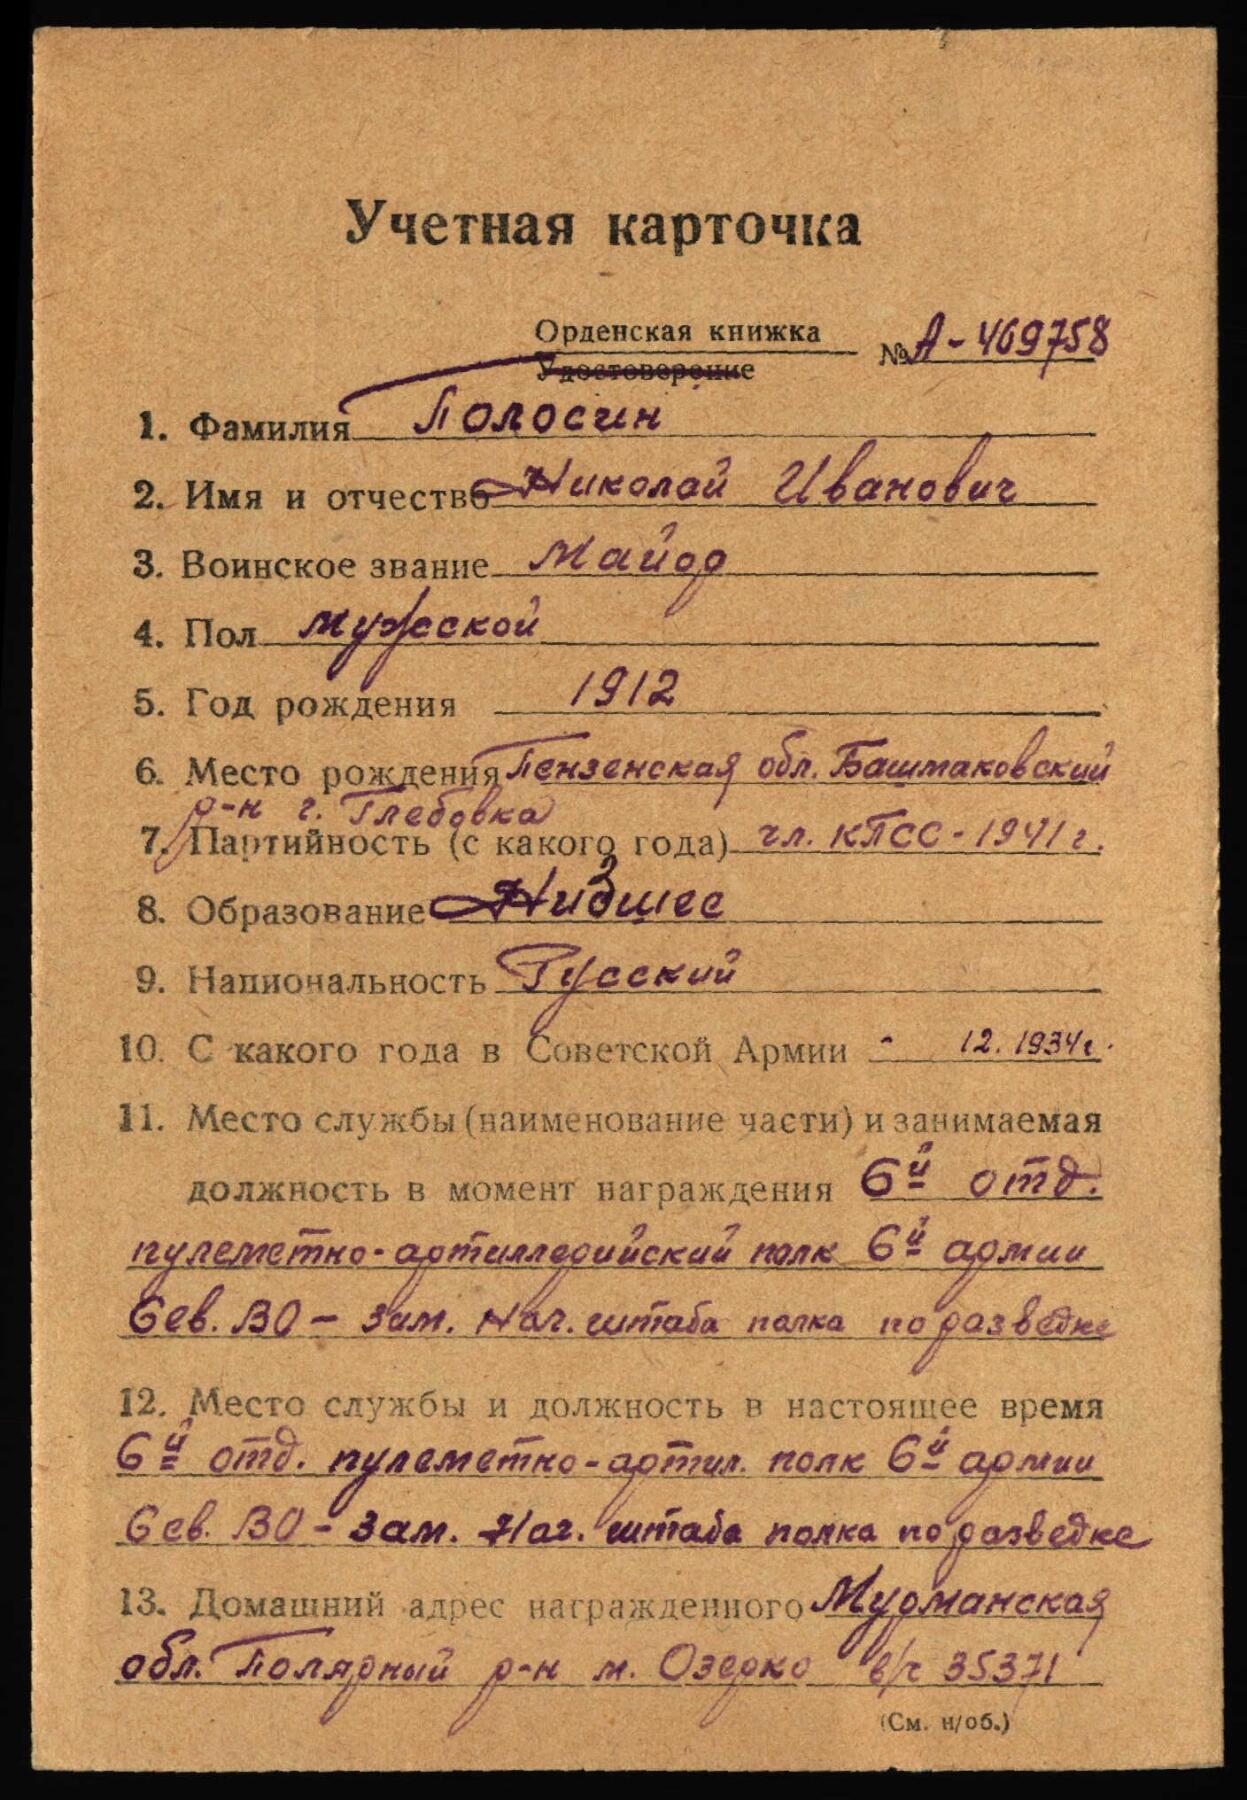 Учетная карточка
Орденская книжка
Удостоверение
№ А-469758
1. Фамилия Полосин
2. Имя и отчество Николай Иванович
3. Воинское звание Майор
4. Пол мужской
5. Год рождения 1912
6. Место рождения Пензенская обл. Башмаковский
р-н г. Глебовка
7. Партийность (с какого года) чл. КПСС - 1941 г.
8. Образование Низшее
9. Национальность Русский
10. С какого года в Советской Армии - 12. 1934 г.
11. Место службы (наименование части) и занимаемая
должность в момент награждения 6й отд.
пулеметно-артиллерийский полк 6й армии
Сев. ВО - зам. нач. штаба полка по разведке
12. Место службы и должность в настоящее время
6й отд. пулеметно-артил. полк 6й армии
Сев. ВО - зам. Нач. штаба полка по разведке
13. Домашний адрес награжденного Мурманская
обл. Полярный р-н м. Озерко в/ч 35371
(См. н/об.)